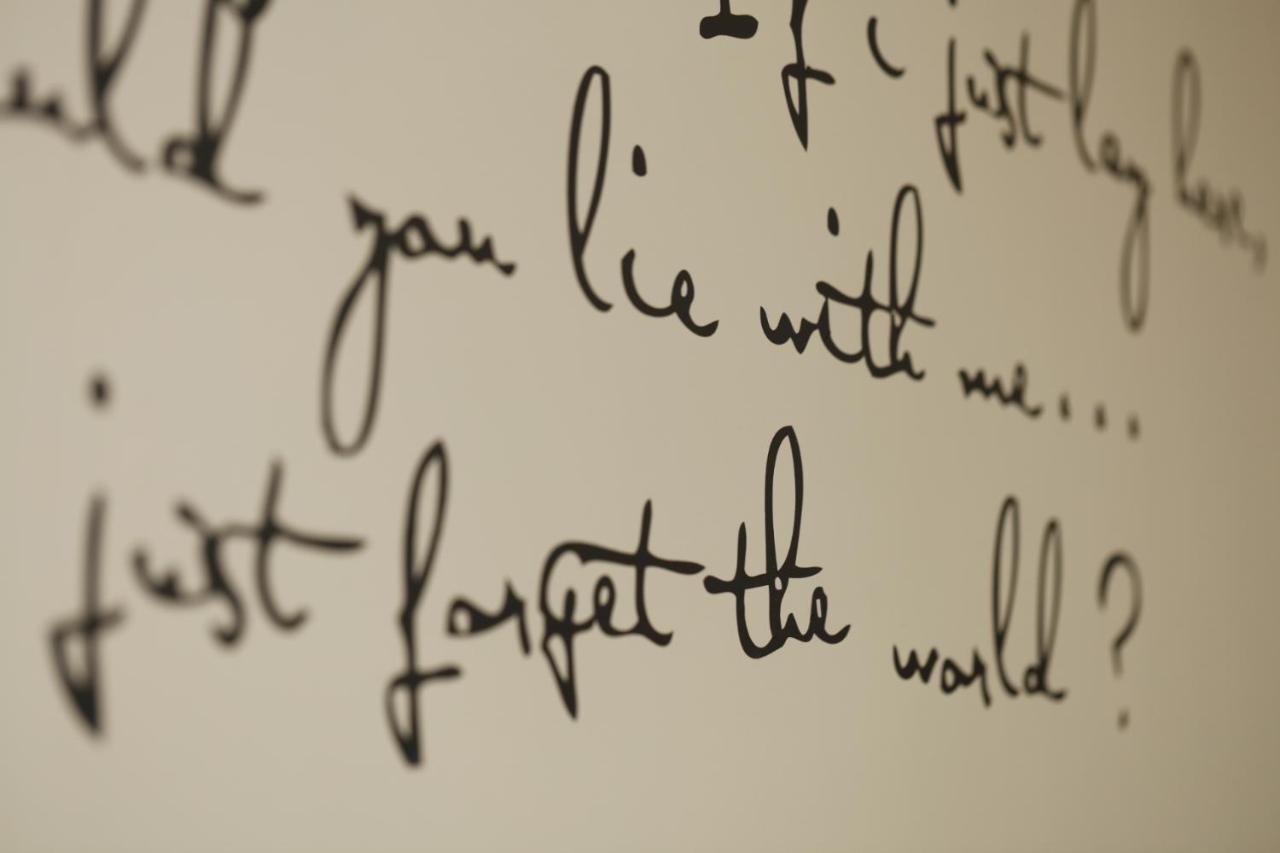 If i just lay here,
would you lie with me...
just forget the world?